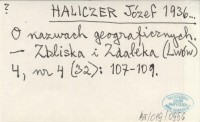 ?
HALICZER Józef 1936...
O nazwach geograficznych.
— Zbliska i Zdaleka (Lwów)
4, nr 4 (32): 107-109.